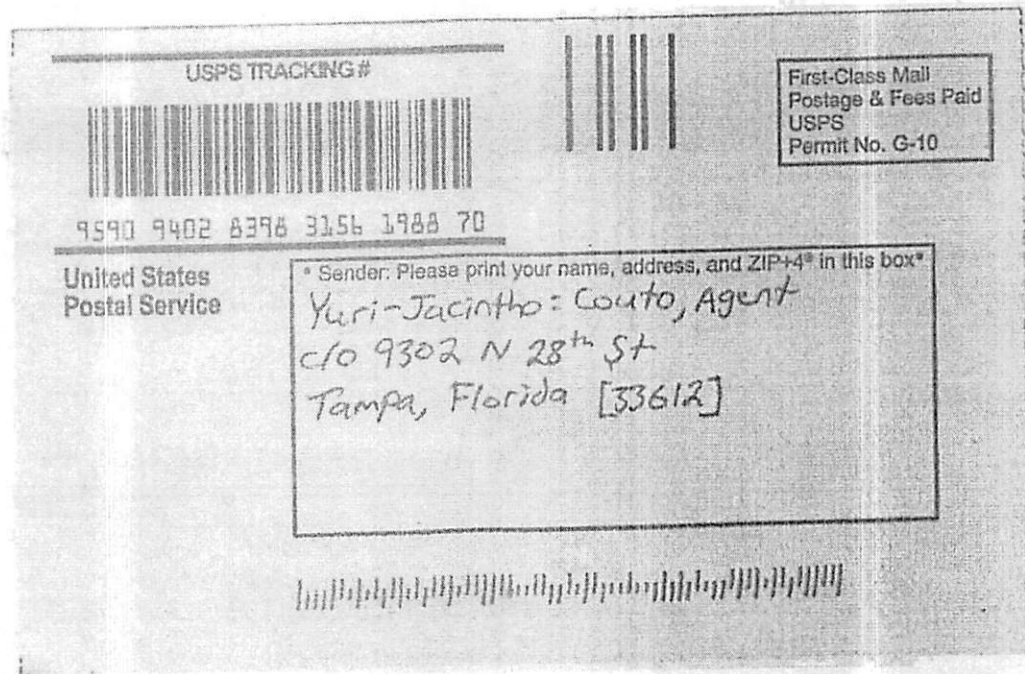 USPS TRACKING #
9590 9402 8398 3156 1988 70
First-Class Mail
Postage & Fees Paid
USPS
Permit No. G-10
United States
Postal Service
* Sender: Please print your name, address, and ZIP+4® in this box*
Yuri-Jacintho: Couto, Agent
c/o 9302 N 28th St
Tampa, Florida [33612]